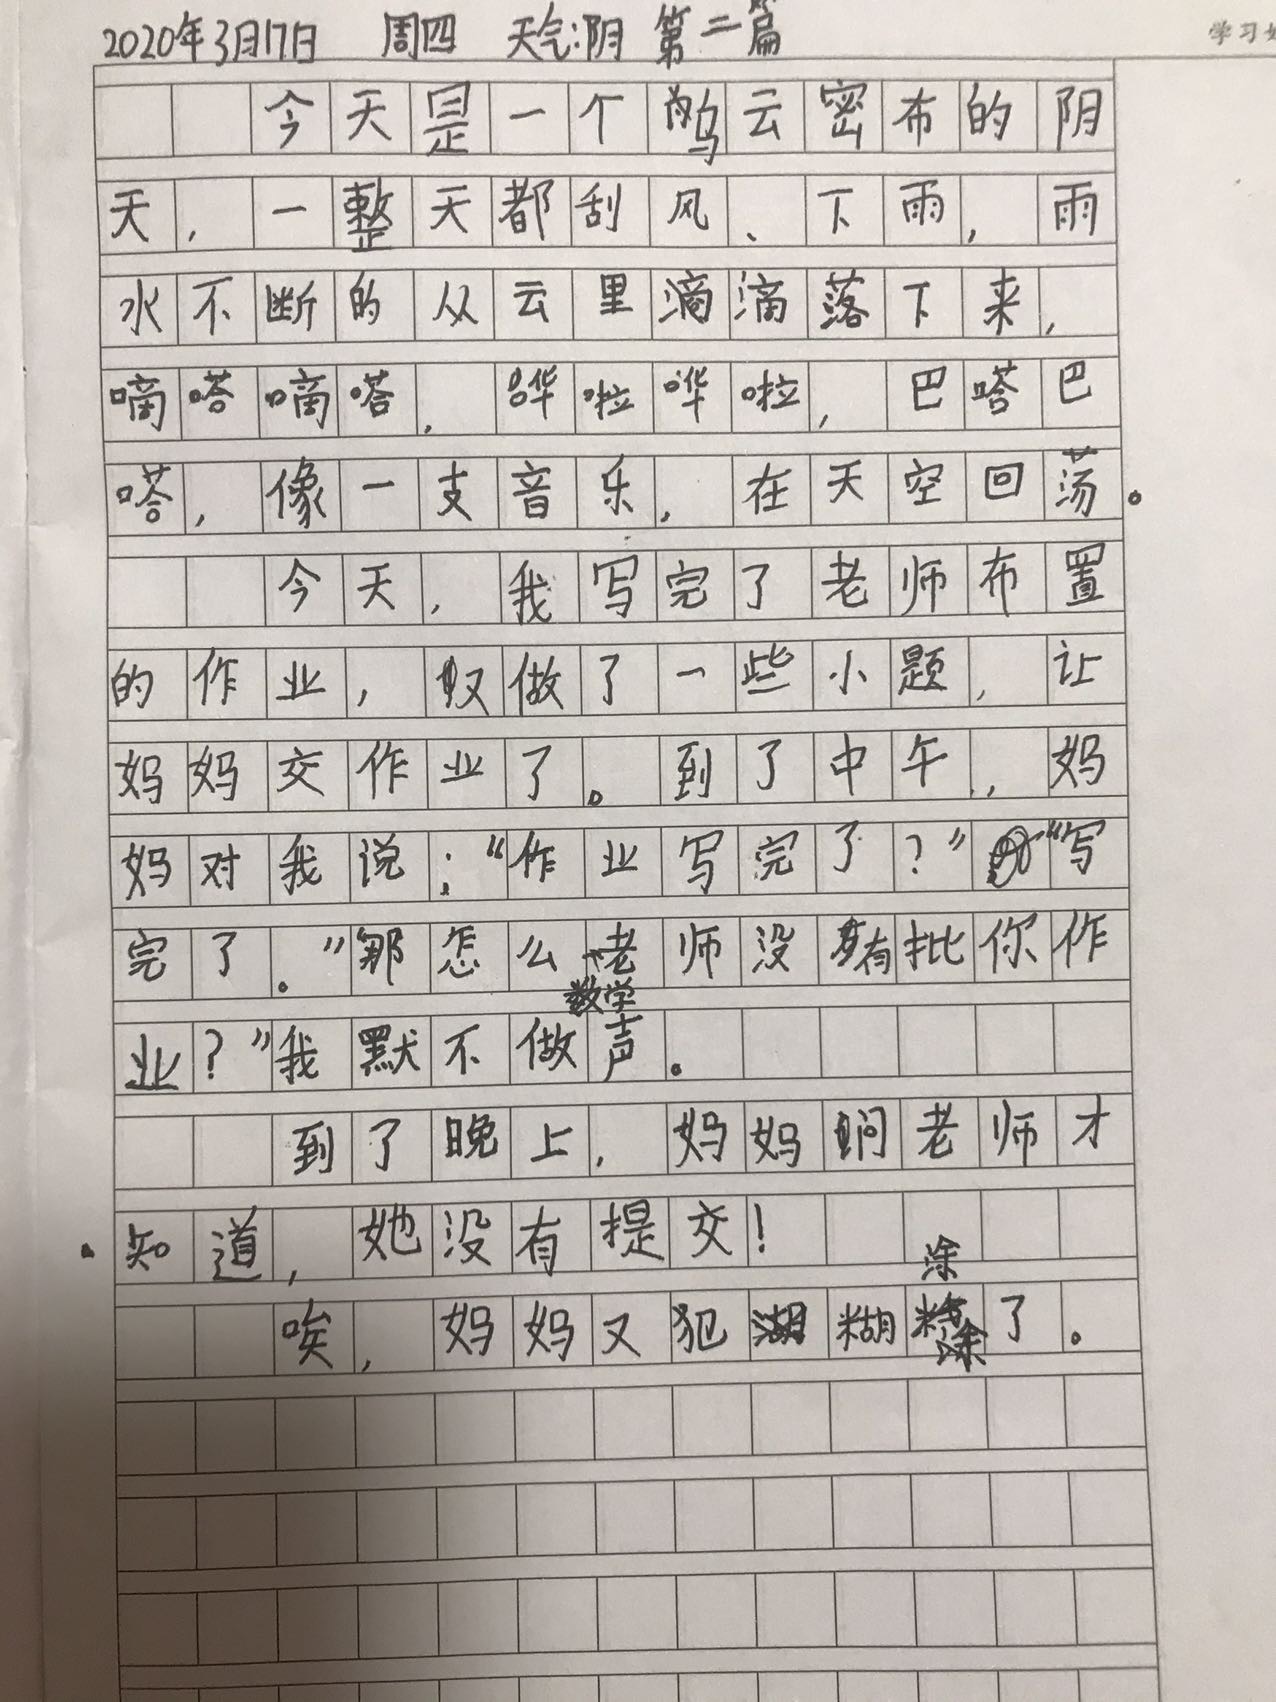 学习
2020年3月17日 周四 天气:阴 第二篇
今天是一个乌云密布的阴
天,一整天都刮风、下雨,雨
水不断的从云里滴滴落下来,
嘀嗒嘀嗒,哗啦哗啦,巴嗒巴
嗒,像一支音乐,在天空回荡。
今天,我写完了老师布置
的作业,又做了一些小题,让
妈妈交作业了。到了中午,妈
妈对我说:“作业写完了?”“写
完了。”那怎么老师没有批你作
数学
业?”我默不做声。
到了晚上,妈妈问老师才
知道,她没有提交!
涂
唉,妈妈又犯糊了。